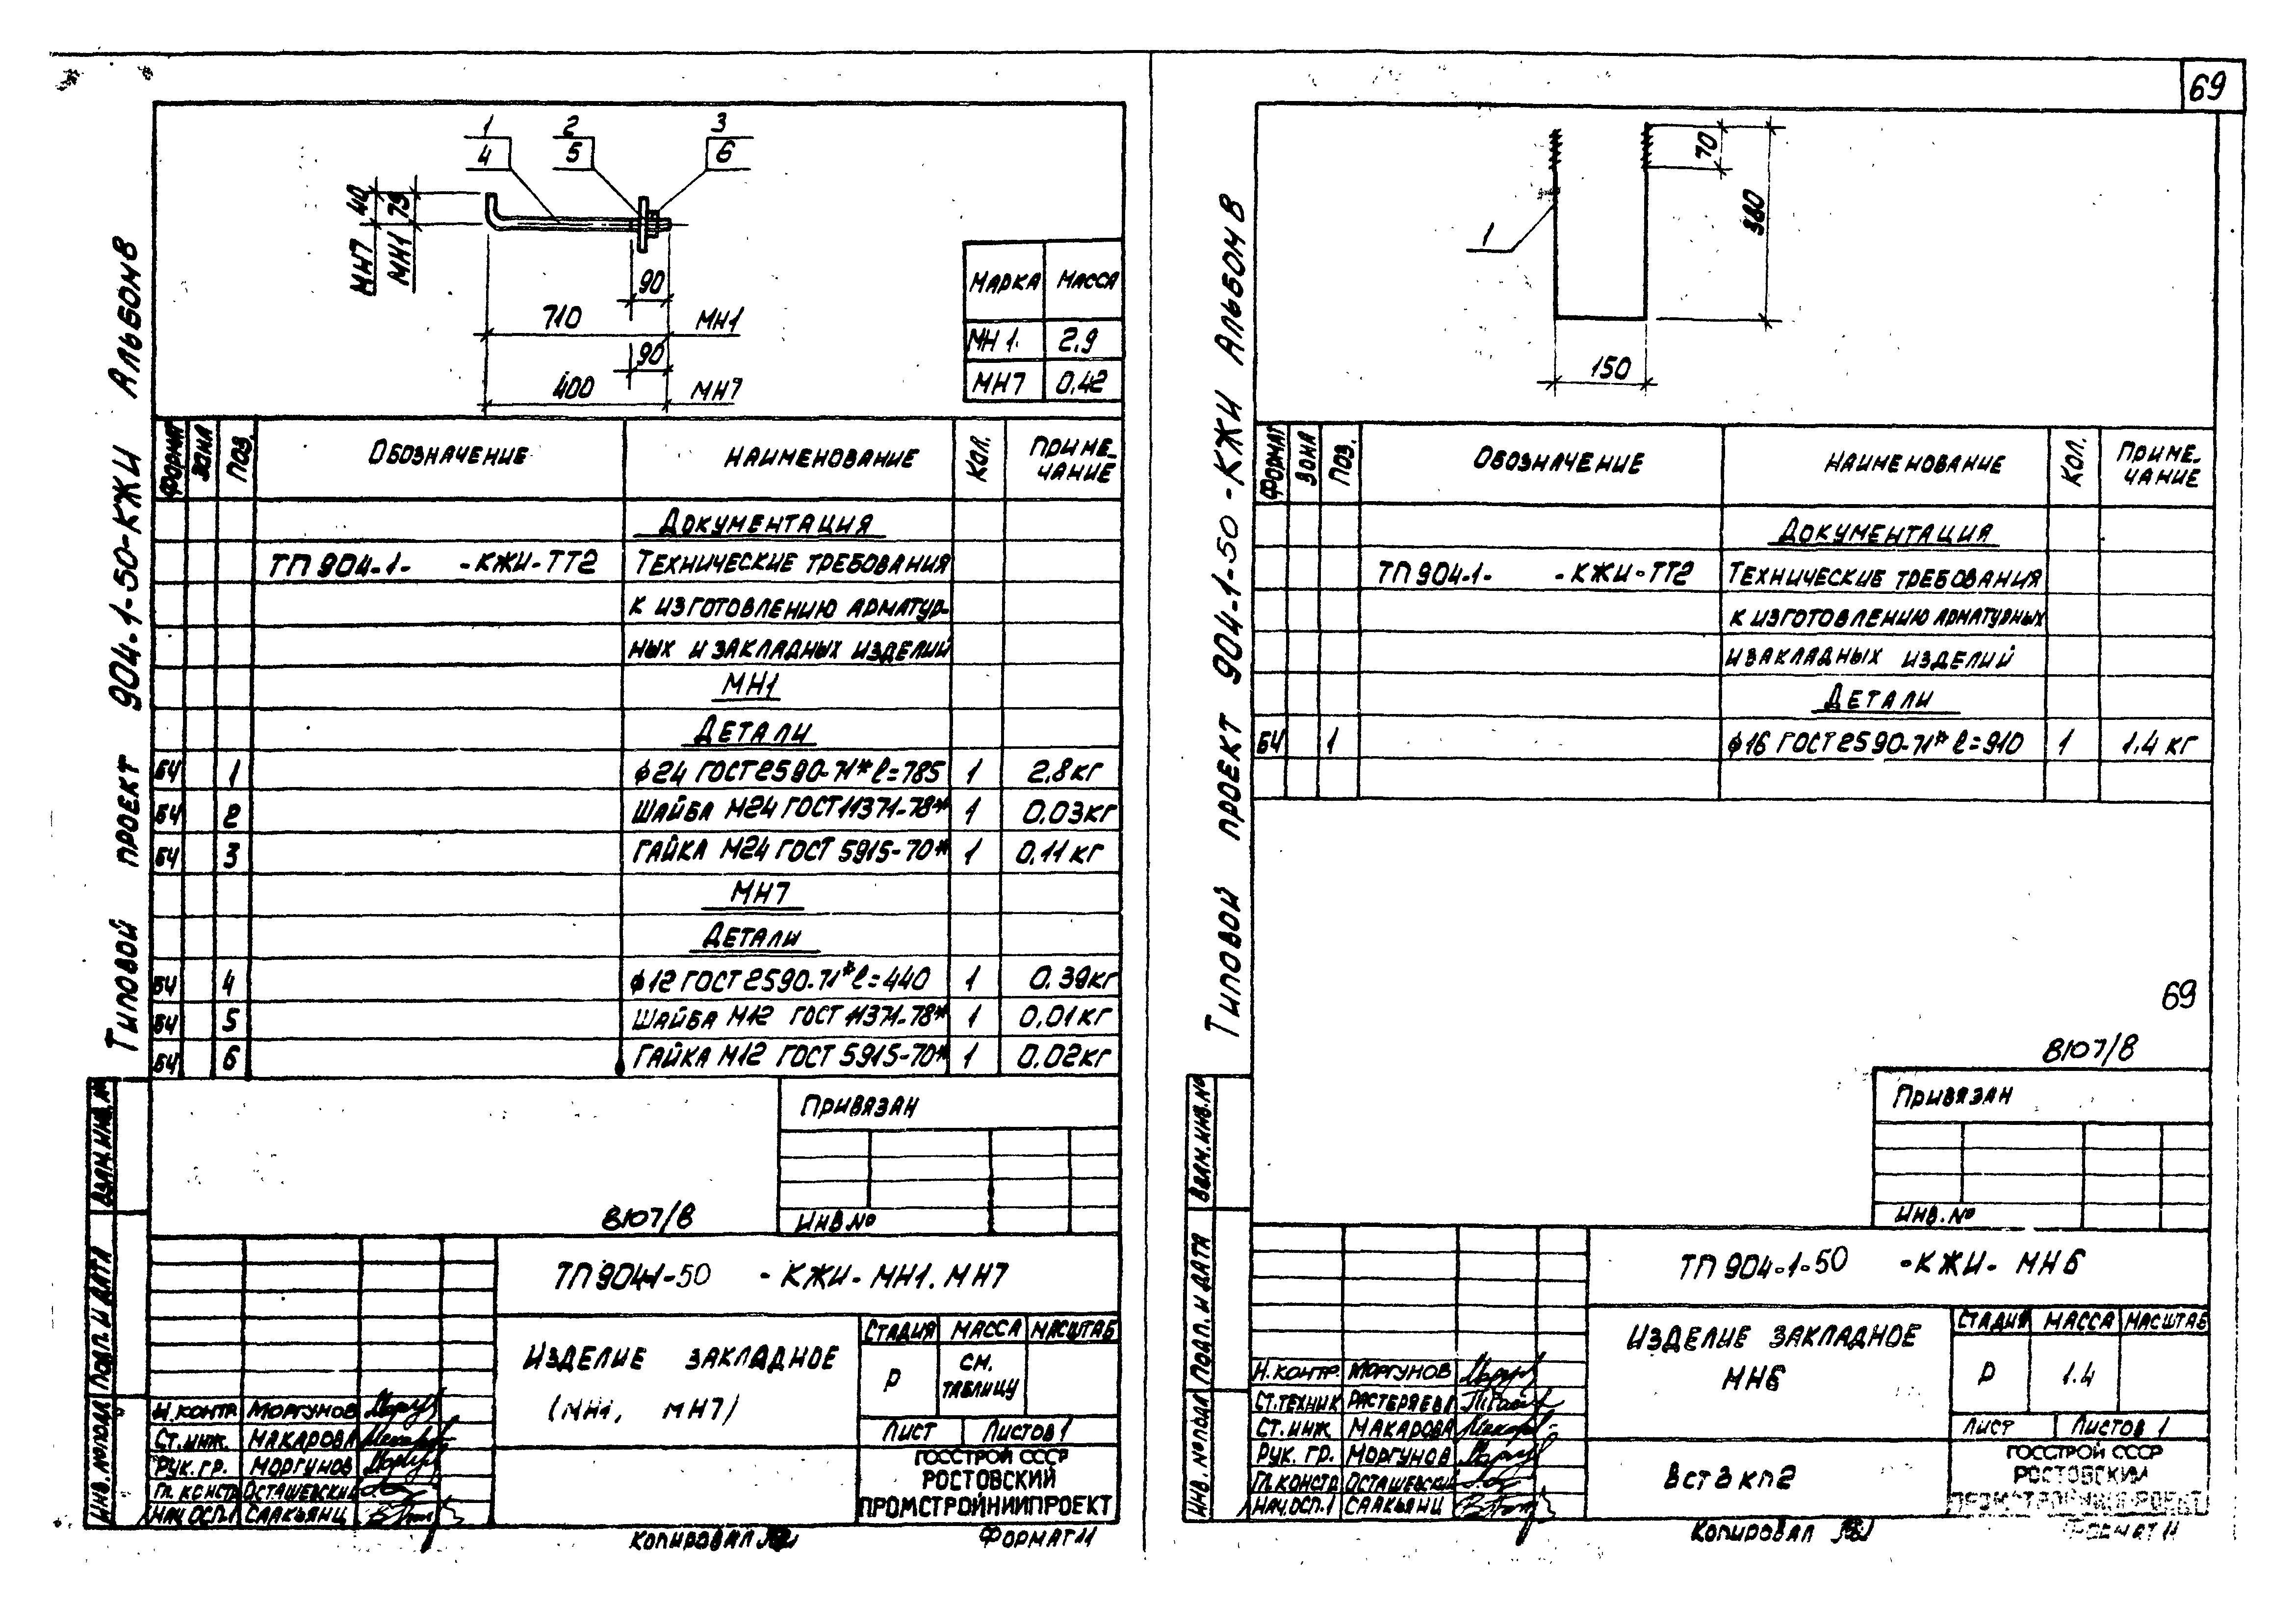 69
1
4
2
5
3
6
40
75
МН7
МН1
90
710
МН1
90
400
МН7
МАРКА МАССА
МН 1. 2,9
МН7 0,42
ФОРМАТ ЗОНА ПОЗ. ОБОЗНАЧЕНИЕ НАИМЕНОВАНИЕ КОЛ. ПРИМЕ-
ЧАНИЕ
ДОКУМЕНТАЦИЯ
ТП 904-1- -КЖИ-ТТ2 ТЕХНИЧЕСКИЕ ТРЕБОВАНИЯ
К ИЗГОТОВЛЕНИЮ АРМАТУР-
НЫХ И ЗАКЛАДНЫХ ИЗДЕЛИЙ
МН1
ДЕТАЛИ
БЧ 1 ф24 ГОСТ 2590-71* ℓ=785 1 2,8кг
БЧ 2 ШАЙБА М24 ГОСТ 11371-78* 1 0,03кг
БЧ 3 ГАЙКА М24 ГОСТ 5915-70* 1 0,11кг
МН7
ДЕТАЛИ
БЧ 4 ф12 ГОСТ 2590-71* ℓ=440 1 0,39кг
БЧ 5 ШАЙБА М12 ГОСТ 11371-78* 1 0,01кг
БЧ 6 ГАЙКА М12 ГОСТ 5915-70* 1 0,02кг
ПРИВЯЗАН
ИНВ.№
8107/8
ТП 904-1-50 -КЖИ-МН1, МН7
ИЗДЕЛИЕ ЗАКЛАДНОЕ
(МН1, МН7)
СТАДИЯ МАССА МАСШТАБ
Р СМ.
ТАБЛИЦУ
ЛИСТ ЛИСТОВ 1
ГОССТРОЙ СССР
РОСТОВСКИЙ
ПРОМСТРОЙНИИПРОЕКТ
Н.КОНТР МОРГУНОВ
СТ.ИНЖ. МАКАРОВА
РУК.ГР. МОРГУНОВ
ГЛ.КОНСТР ОСТАШЕВСКИЙ
НАЧ.ОСП.1 СААКЬЯНЦ
КОПИРОВАЛ
ФОРМАТ 11
ТИПОВОЙ ПРОЕКТ 904-1-50-КЖИ АЛЬБОМ 8
ВЗАМ.ИНВ.№
ПОДП. И ДАТА
ИНВ.№ПОДЛ
1
70
380
150
ФОРМАТ ЗОНА ПОЗ. ОБОЗНАЧЕНИЕ НАИМЕНОВАНИЕ КОЛ. ПРИМЕ-
ЧАНИЕ
ДОКУМЕНТАЦИЯ
ТП 904-1- -КЖИ-ТТ2 ТЕХНИЧЕСКИЕ ТРЕБОВАНИЯ
К ИЗГОТОВЛЕНИЮ АРМАТУРНЫХ
И ЗАКЛАДНЫХ ИЗДЕЛИЙ
ДЕТАЛИ
БЧ 1 ф16 ГОСТ 2590-71* ℓ=910 1 1,4 кг
69
8107/8
ПРИВЯЗАН
ИНВ.№
ТП 904-1-50 -КЖИ- МН6
ИЗДЕЛИЕ ЗАКЛАДНОЕ
МН6
СТАДИЯ МАССА МАСШТАБ
Р 1.4
ЛИСТ ЛИСТОВ 1
ВСт3кп2
ГОССТРОЙ СССР
РОСТОВСКИЙ
ПРОМСТРОЙНИИПРОЕКТ
Н.КОНТР. МОРГУНОВ
СТ.ТЕХНИК РАСТЕРЯЕВА
СТ.ИНЖ. МАКАРОВА
РУК. ГР. МОРГУНОВ
ГЛ.КОНСТР ОСТАШЕВСКИЙ
НАЧ.ОСП.1 СААКЬЯНЦ
КОПИРОВАЛ
ФОРМАТ 11
ТИПОВОЙ ПРОЕКТ 904-1-50-КЖИ АЛЬБОМ 8
ВЗАМ.ИНВ.№
ПОДП. И ДАТА
ИНВ.№ПОДЛ